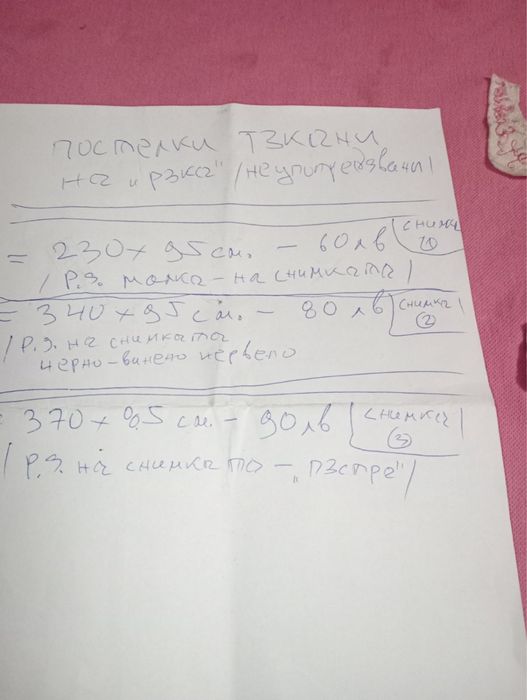 постелки тъкани
на „ръка" /неупотребявани/
= 230 × 95 см. - 60 лв снимка ①
/ Р.З. малка - на снимката /
= 340 × 95 см. - 80 лв снимка ②
/ Р.З. на снимката
черно-винено червено
370 × 95 см. - 90 лв снимка ③
/ Р.З. на снимката - „пъстра" /